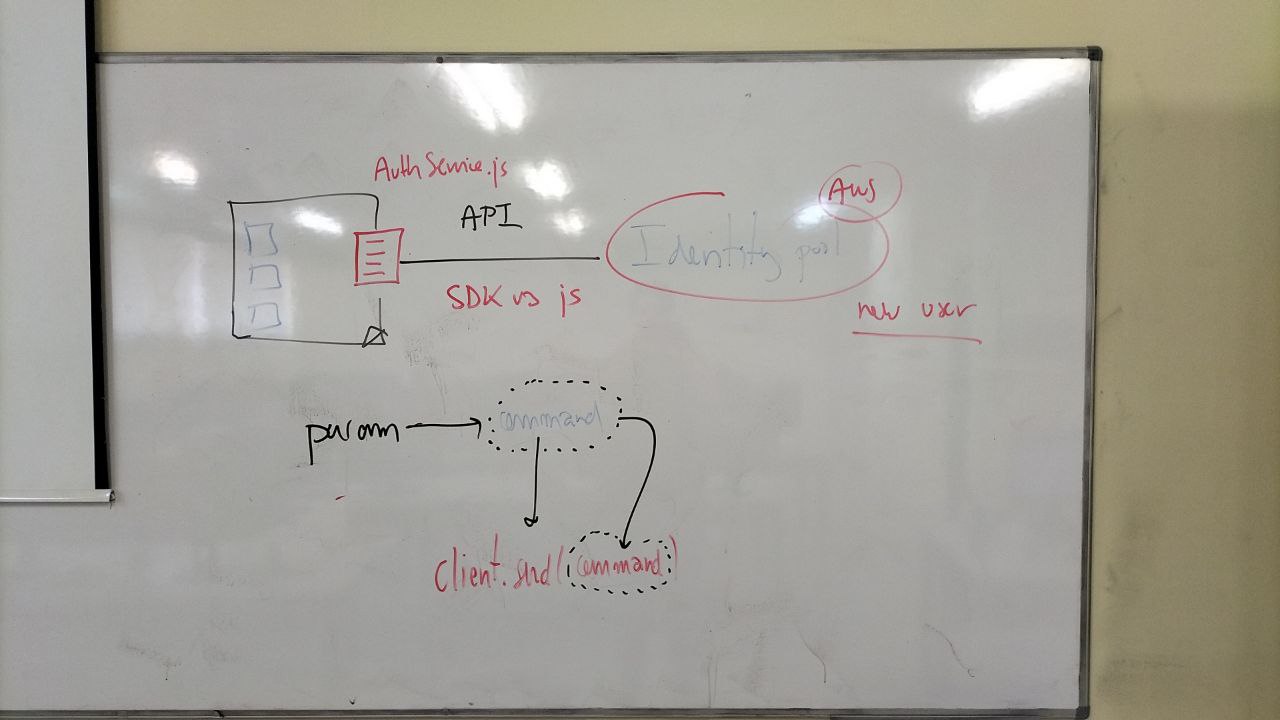 AuthService.js
API
AWS
Identity pool
SDK v3 js
new user
param
command
client.send(command)